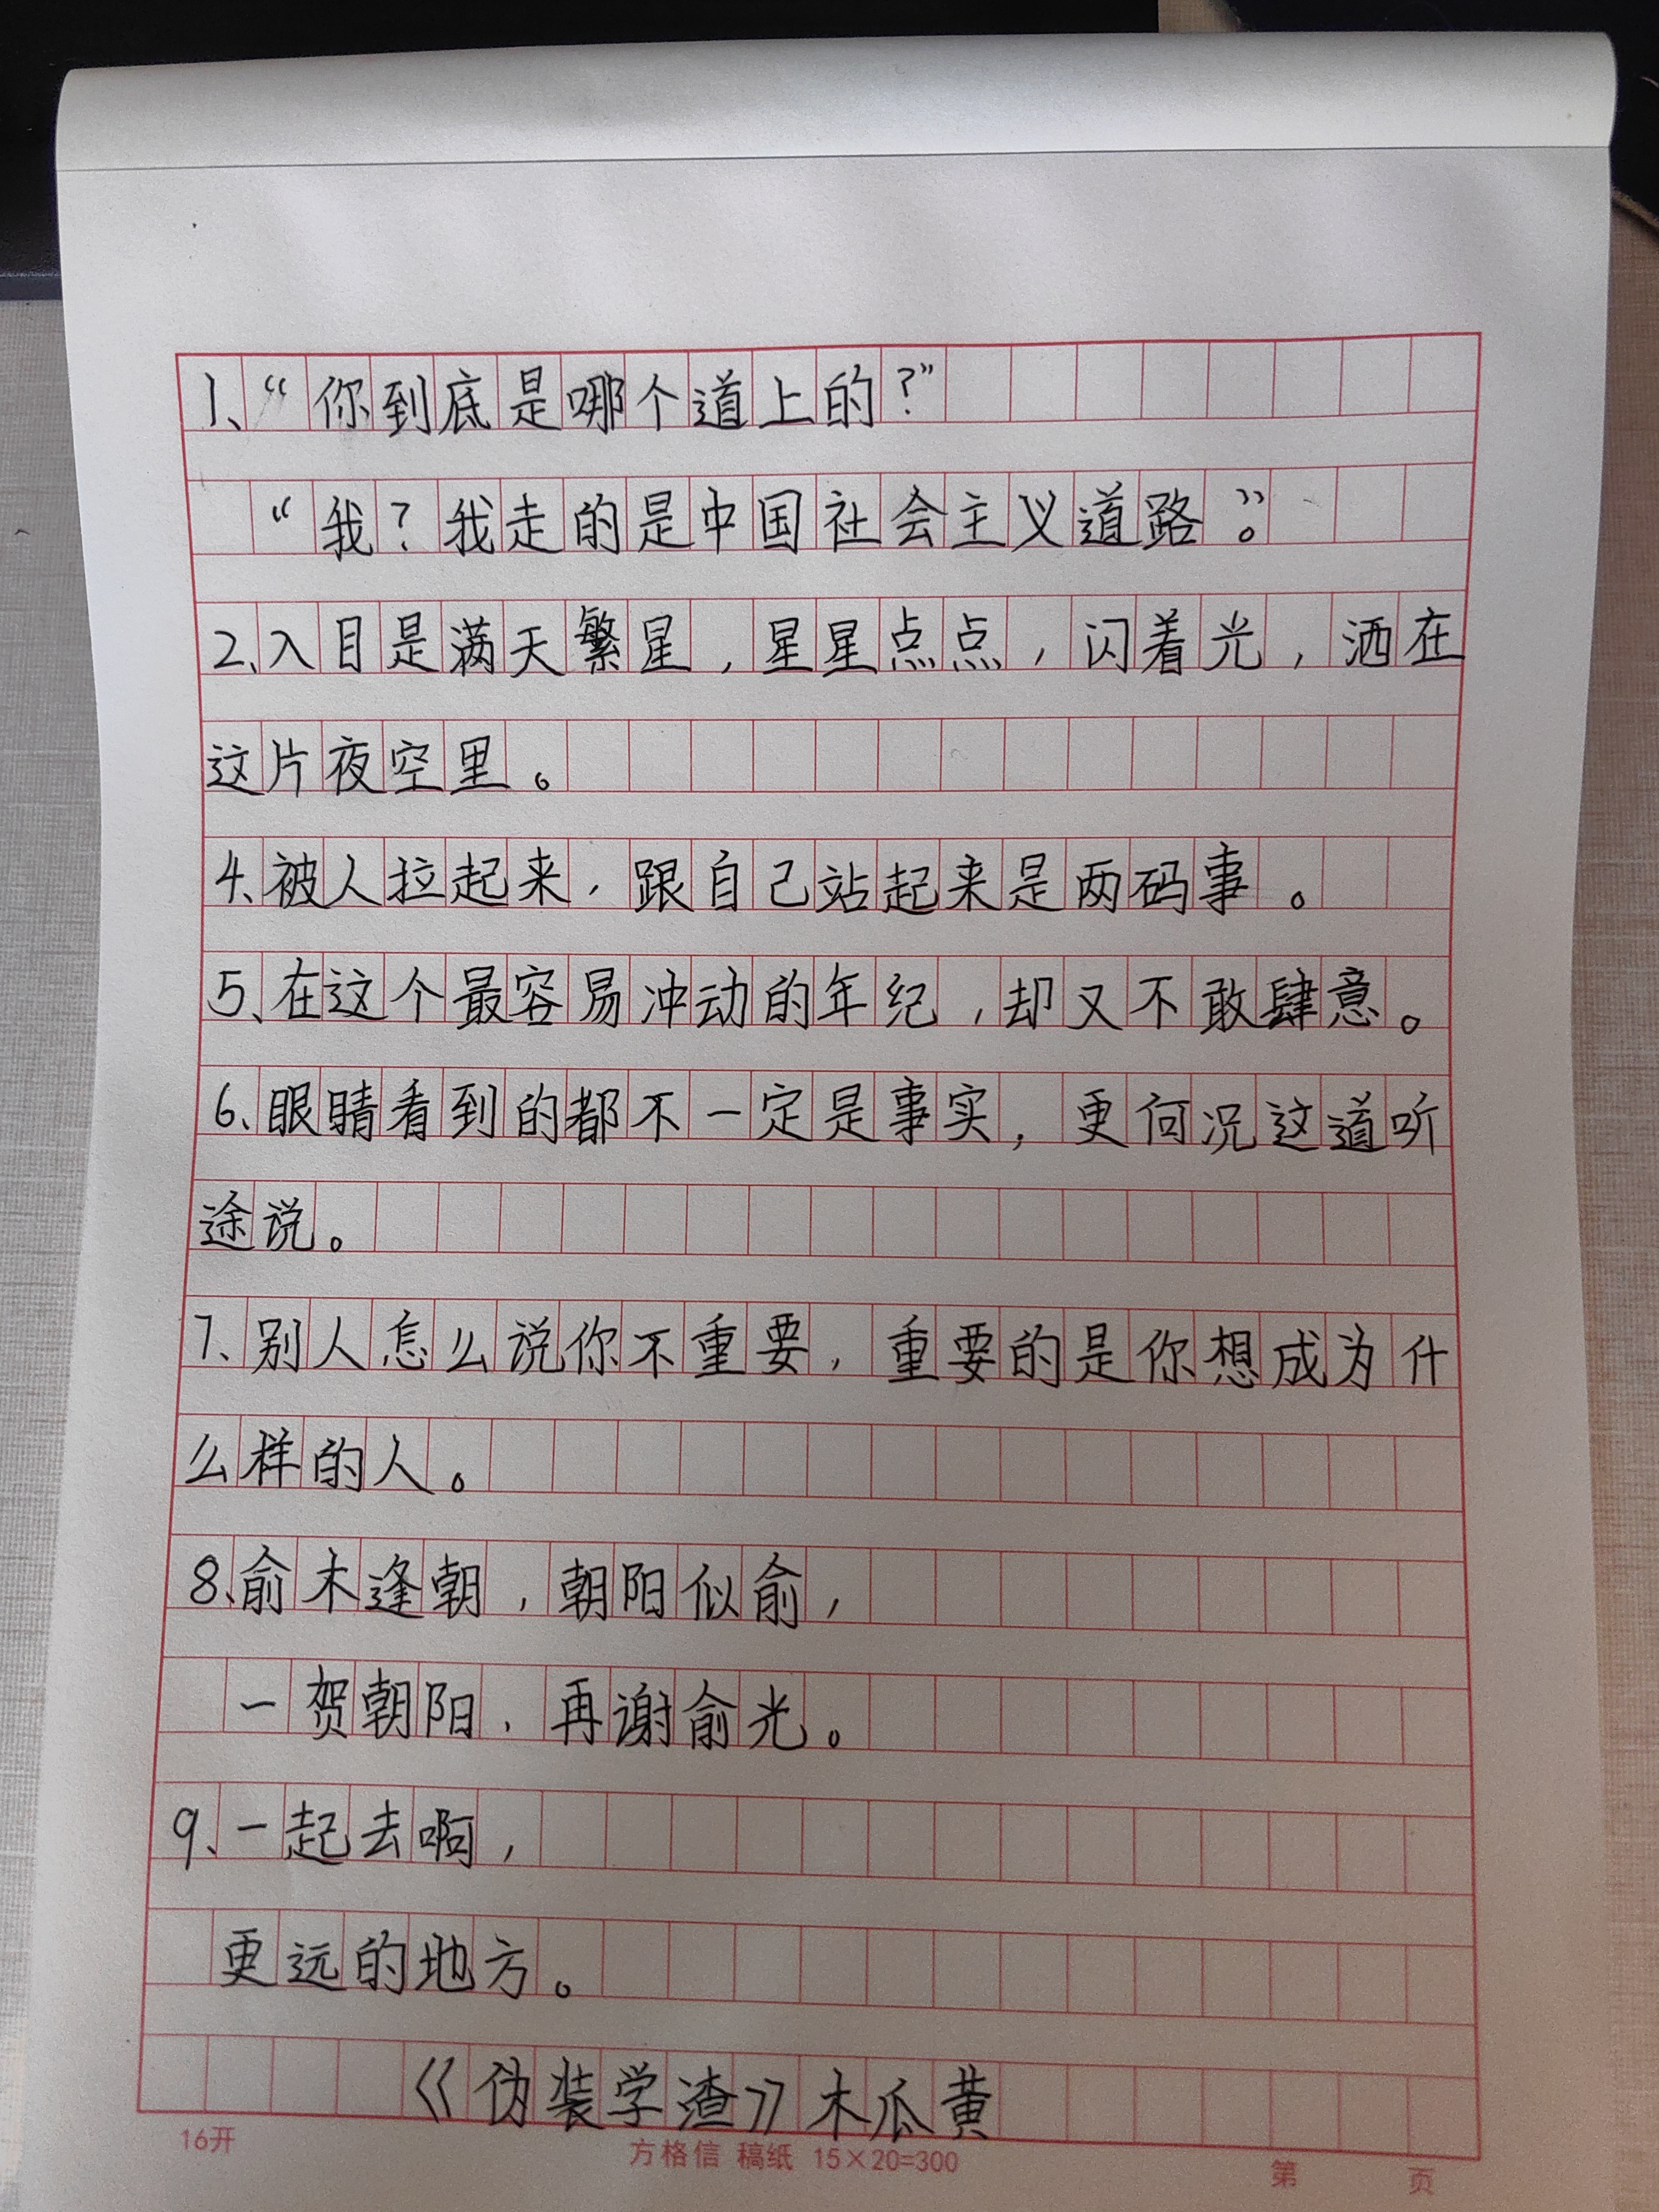 1、“你到底是哪个道上的？”
“我？我走的是中国社会主义道路”。
2、入目是满天繁星，星星点点，闪着光，洒在
这片夜空里。
4、被人拉起来，跟自己站起来是两码事。
5、在这个最容易冲动的年纪，却又不敢肆意。
6、眼睛看到的都不一定是事实，更何况这道听
途说。
7、别人怎么说你不重要，重要的是你想成为什
么样的人。
8、俞木逢朝，朝阳似俞，
一贺朝阳，再谢俞光。
9、一起去啊，
更远的地方。
《伪装学渣》木瓜黄
16开 方格信 稿纸 15×20=300 第 页